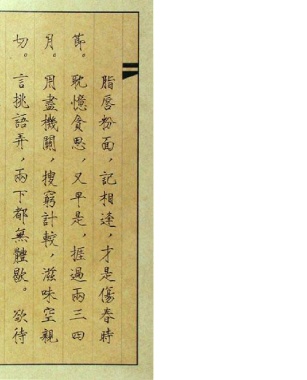 脂唇粉面，記相逢，才是傷春時
節。耽憶貪思，又早是，捱過兩三四
月。用盡機關，搜窮計較，滋味空親
切。言挑語弄，兩下都無體歇。欲待